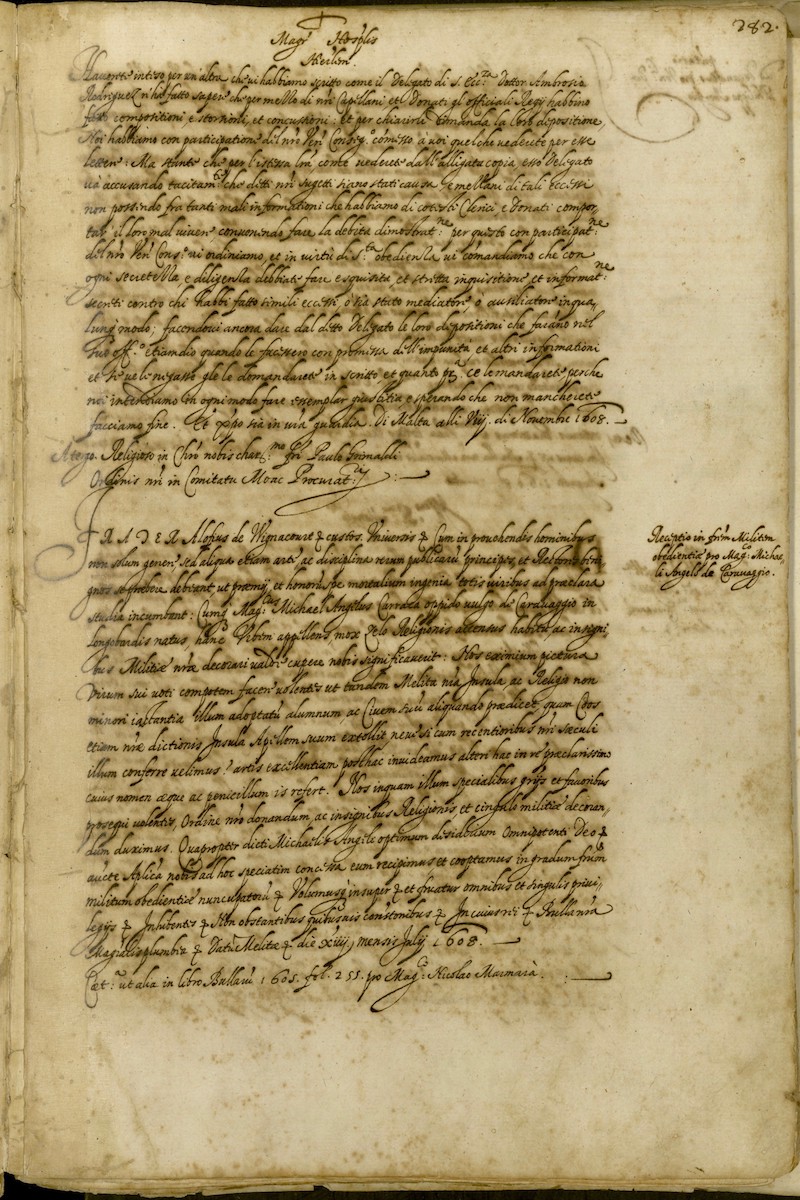 282.
Magr Hosplis
Hierlem.
Havrete inteso per un'altra che vi habbiamo scritto come il Delegato di S. Ecc.za Dottor Ambrosio
Rodriguez n'hà fatto sapere che per mezzo di nri Capillani et Donati gl'officiali Regij habbino
fatto compositioni e storsioni, et concussioni; et per chiarirle dimanda la loro depositione
Noi habbiamo con participatione del nro Ven Consig.o comesso a voi quel che vedrete per esse
lettere: Ma stante che per l'istessa lra come vedrete dall'alligata copia esso Delegato
và accusando tacitam.te che ditti nri sugetti siano stati causa e mezzani di tali eccessi
non possendo fra tanti mali informationi che habbiamo di cotesti Clerici e Donati compor
tar il loro mal vivere convenendo fare la debita dimostrat.ne: per questo con participat.ne
del nro Ven Cons.o vi ordiniamo, et in virtù di S.ta obedienza vi comandiamo che con
ogni secretezza e diligenza debbiate fare esquisita et stretta inquisitione et informat.ne
secreti contro chi habbi fatto simili eccessi, ò sia stato mediatore o ausiliatore in qua,
lunq modo; facendovi ancora dare dal ditto Delegato le loro depositioni che facano nel
suo off.o etiamdio quando le facessero con promissa dell'impunità et altri informationi
et se ve le negasse gle le domandarete in scritto et quanto p.a ce le mandarete perche
noi intendiamo in ogni modo fare essemplar giustitia e sperando che non mancherete
facciamo fine. Et N.S. Dio sia in vra guardia. Di Malta alli Viij. di Novembre 1608.
Religioso in Chro nobis chariss.mo frì Paulo Grimaldi
Ordinis nri in Comitatu Moac Procurat.ri
FRATER Alofius de Wignacourt & custos. Universis & Cum in provehendis hominibus
non solum genere, sed aliqua etiam arte ac disciplina rerum publicarù principes, et Rectores beni
gnos se prebere debeant ut premij, et honoris spe mortalium ingenia totis viribus ad praeclara
studia incumbant: Cumq Mag.cus Michael Angelus Carraca oppido vulgo de Caravaggio in
Longobardis natus, hanc Urbem appellens, mox Zelo Religionis accensus habitu ac insigni
bus Militiae nrae decorari valde cupere nobis significaverit: Nos eximium pictura
Virum sui voti compotem facere volentes ut tandem Melita nra Insula ac Religio non
minori iactantia Illum adoptatù alumnum ac Civem suù aliquando praedicet, quam Coos
etiam nrae dictionis Insula Apellem suum extollit neve si cum recentioribus nri Saeculi
illum conferre velimus? artis excellentiam posthac invideamus alteri hac in re praeclarissimo
cuius nomen aeque ac penicillum is refert. Nos inquam illum specialibus grijs et favoribus
prosequi volentes, Ordine nro donandum, ac insignibus Religionis, et cingulo militiae decoran,
dum duximus. Quapropter dicti Michaelis Angeli optimum desiderium Omnipotenti Deo &
aucte Aplica nobis ad hoc speciatim concessa eum recipimus et cooptamus in gradum frum
militum obedientiae nuncupatorù & Volumusq insuper & et fruatur omnibus et singulis privi,
legijs & Inhibentes & Non obstantibus quibusvis constonibus & In cuius rei & Bulla nra
Magralis plumbea & Datù Melitae & die xiiij mensis Julij 1608.
ut alia in libro Bullarù 1605. fol. 255. pro Mag.co Nicolao Marmarà.
Receptio in frem Militem
obedientiae pro Mag.co Michae,
li Angelo de Caravaggio.